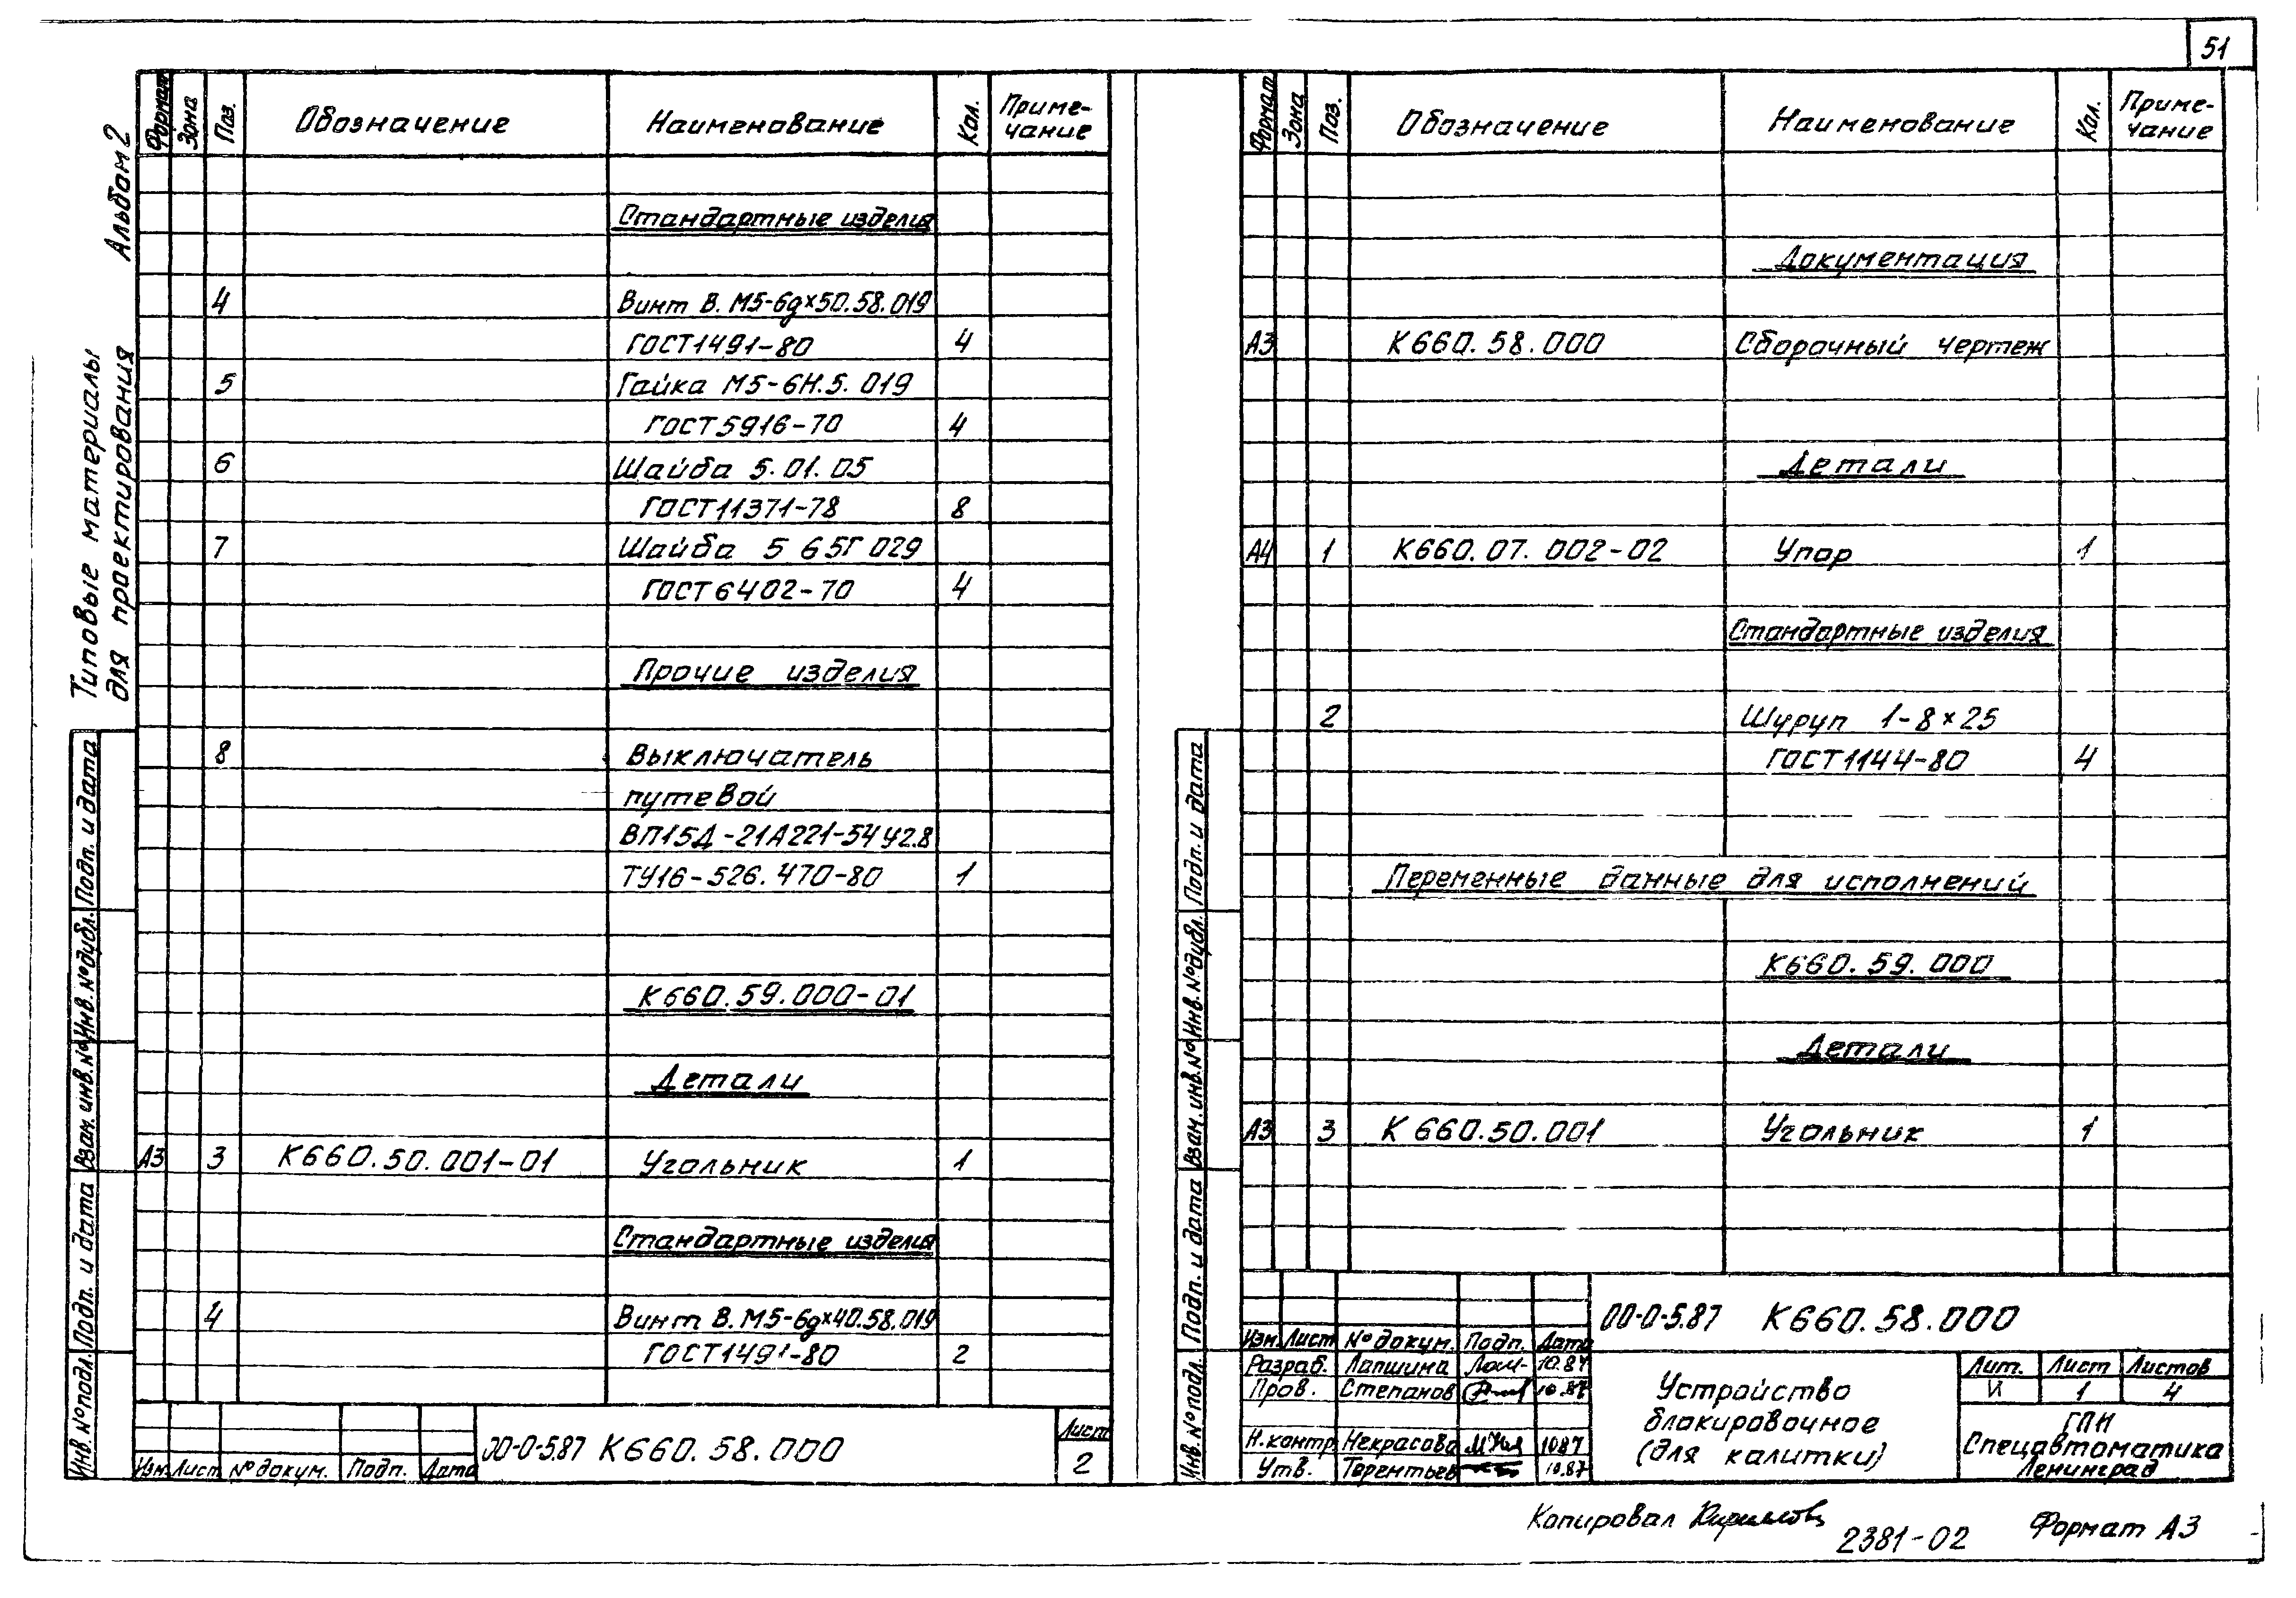 51
Типовые материалы для проектирования Альбом 2
Формат Зона Поз. Обозначение Наименование Кол. Приме-чание
Стандартные изделия
4 Винт В.М5-6gх50.58.019
ГОСТ1491-80 4
5 Гайка М5-6Н.5.019
ГОСТ5916-70 4
6 Шайба 5.01.05
ГОСТ11371-78 8
7 Шайба 5 65Г 029
ГОСТ6402-70 4
Прочие изделия
8 Выключатель
путевой
ВП15Д-21А221-54У2.8
ТУ16-526.470-80 1
К660.59.000-01
Детали
А3 3 К660.50.001-01 Угольник 1
Стандартные изделия
4 Винт В.М5-6gх40.58.019
ГОСТ1491-80 2
Инв.№подл. Подп. и дата Взам.инв.№ Инв.№дубл. Подп. и дата
Изм. Лист №докум. Подп. Дата
00-0-5.87 К660.58.000
Лист
2
Формат Зона Поз. Обозначение Наименование Кол. Приме-чание
Документация
А3 К660.58.000 Сборочный чертеж
Детали
А4 1 К660.07.002-02 Упор 1
Стандартные изделия
2 Шуруп 1-8×25
ГОСТ1144-80 4
Переменные данные для исполнений
К660.59.000
Детали
А3 3 К660.50.001 Угольник 1
Инв.№подл. Подп. и дата Взам.инв.№ Инв.№дубл. Подп. и дата
00-0-5.87 К660.58.000
Изм. Лист №докум. Подп. Дата
Разраб. Лапшина 10.87
Пров. Степанов 10.87
Н.контр. Некрасова 10.87
Утв. Терентьев 10.87
Устройство
блокировочное
(для калитки)
Лит. Лист Листов
1 4
ГПИ
Спецавтоматика
Ленинград
Копировал
2381-02
Формат А3